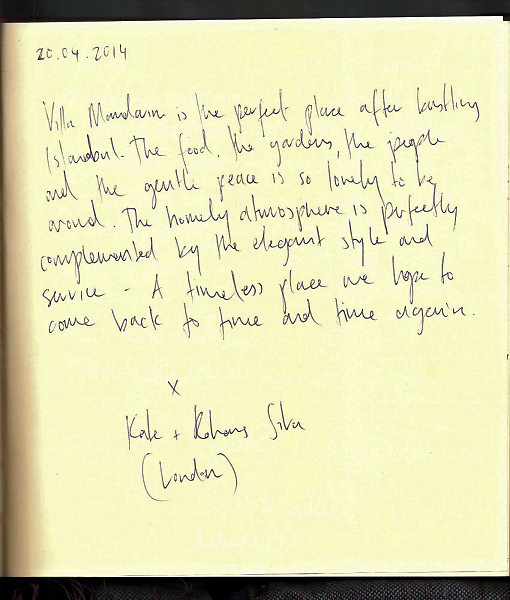 20.04.2014
Villa Mandarin is the perfect place after bustling
Istanbul. The food, the gardens, the people
and the gentle peace is so lovely to be
around. The homely atmosphere is perfectly
complemented by the elegant style and
service - A timeless place we hope to
come back to time and time again.
x
Kate + Silva
(London)